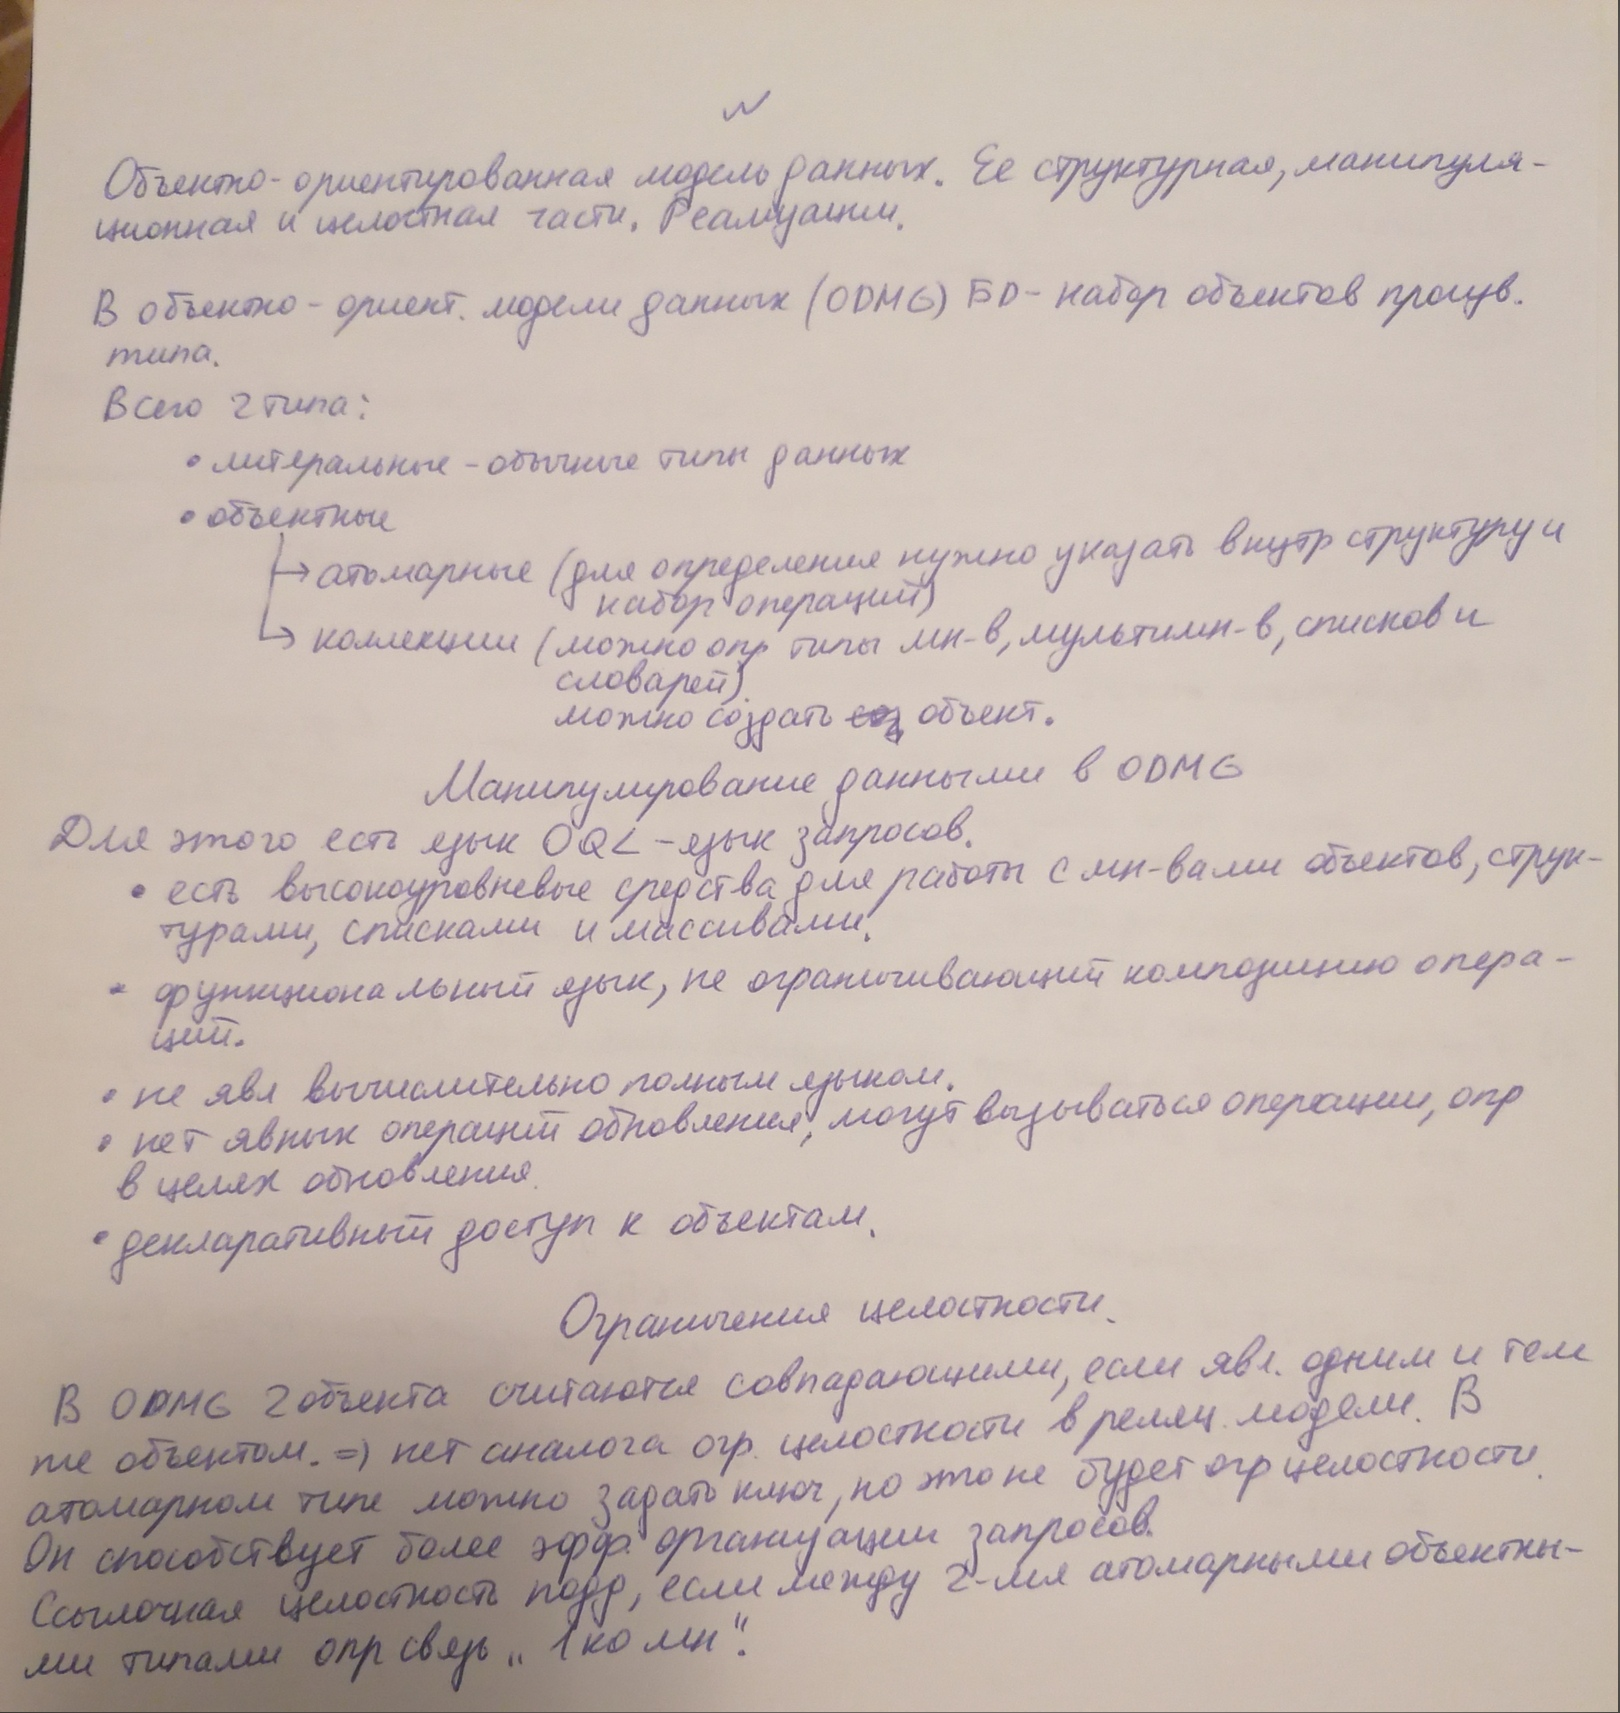 Объектно-ориентированная модель данных. Ее структурная, манипуля-
ционная и целостная части. Реализации.
В объектно-ориент. модели данных (ODMG) БD - набор объектов произв.
типа.
Всего 2 типа:
• литеральные - обычные типы данных
• объектные
→ атомарные (для определения нужно указать внутр структуру и
набор операций)
→ коллекции (можно опр типы мн-в, мультимн-в, списков и
словарей)
можно создать объект.
Манипулирование данными в ODMG
Для этого есть язык OQL - язык запросов.
• есть высокоуровневые средства для работы с мн-вами объектов, струк-
турами, списками и массивами.
• функциональный язык, не ограничивающий композицию опера-
ций.
• не явл вычислительно полным языком.
• нет явных операций обновления, могут вызываться операции, опр
в целях обновления.
• декларативный доступ к объектам.
Ограничения целостности.
В ODMG 2 объекта считаются совпадающими, если явл. одним и тем
же объектом. => нет аналога огр. целостности в реляц. модели. В
атомарном типе можно задать ключ, но это не будет огр целостности.
Он способствует более эфф. организации запросов.
Ссылочная целостность подд, если между 2-мя атомарными объектны-
ми типами опр связь „1 ко мн".